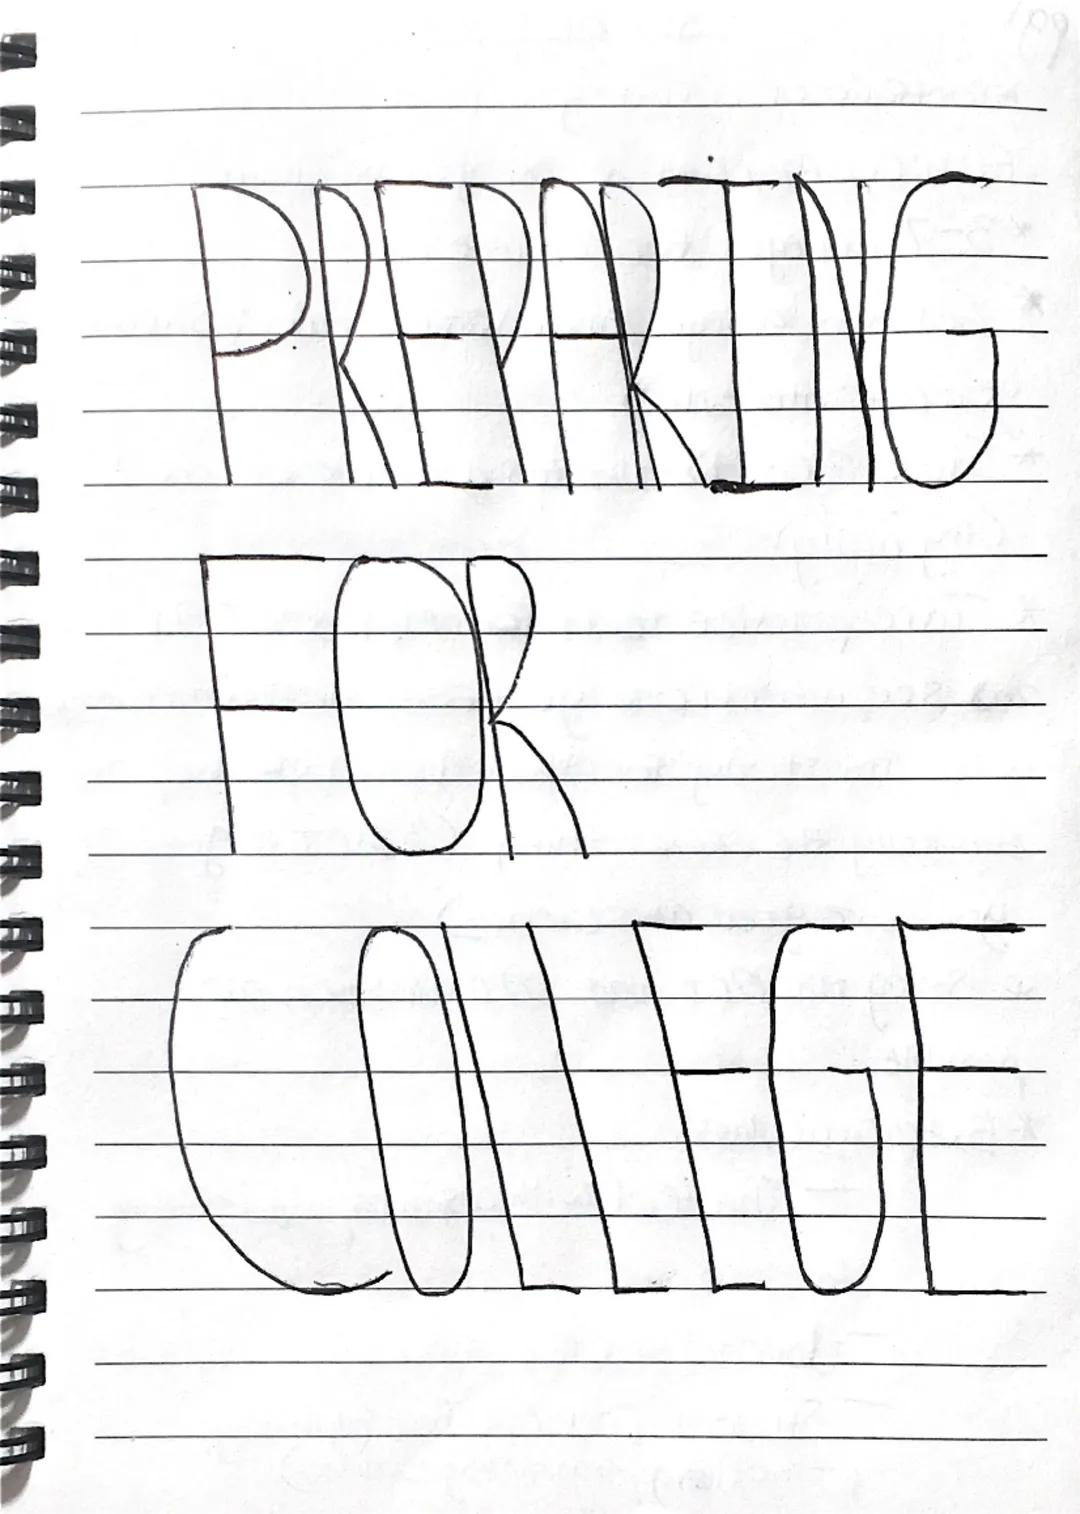 PREPARING
FOR
COLLEGE